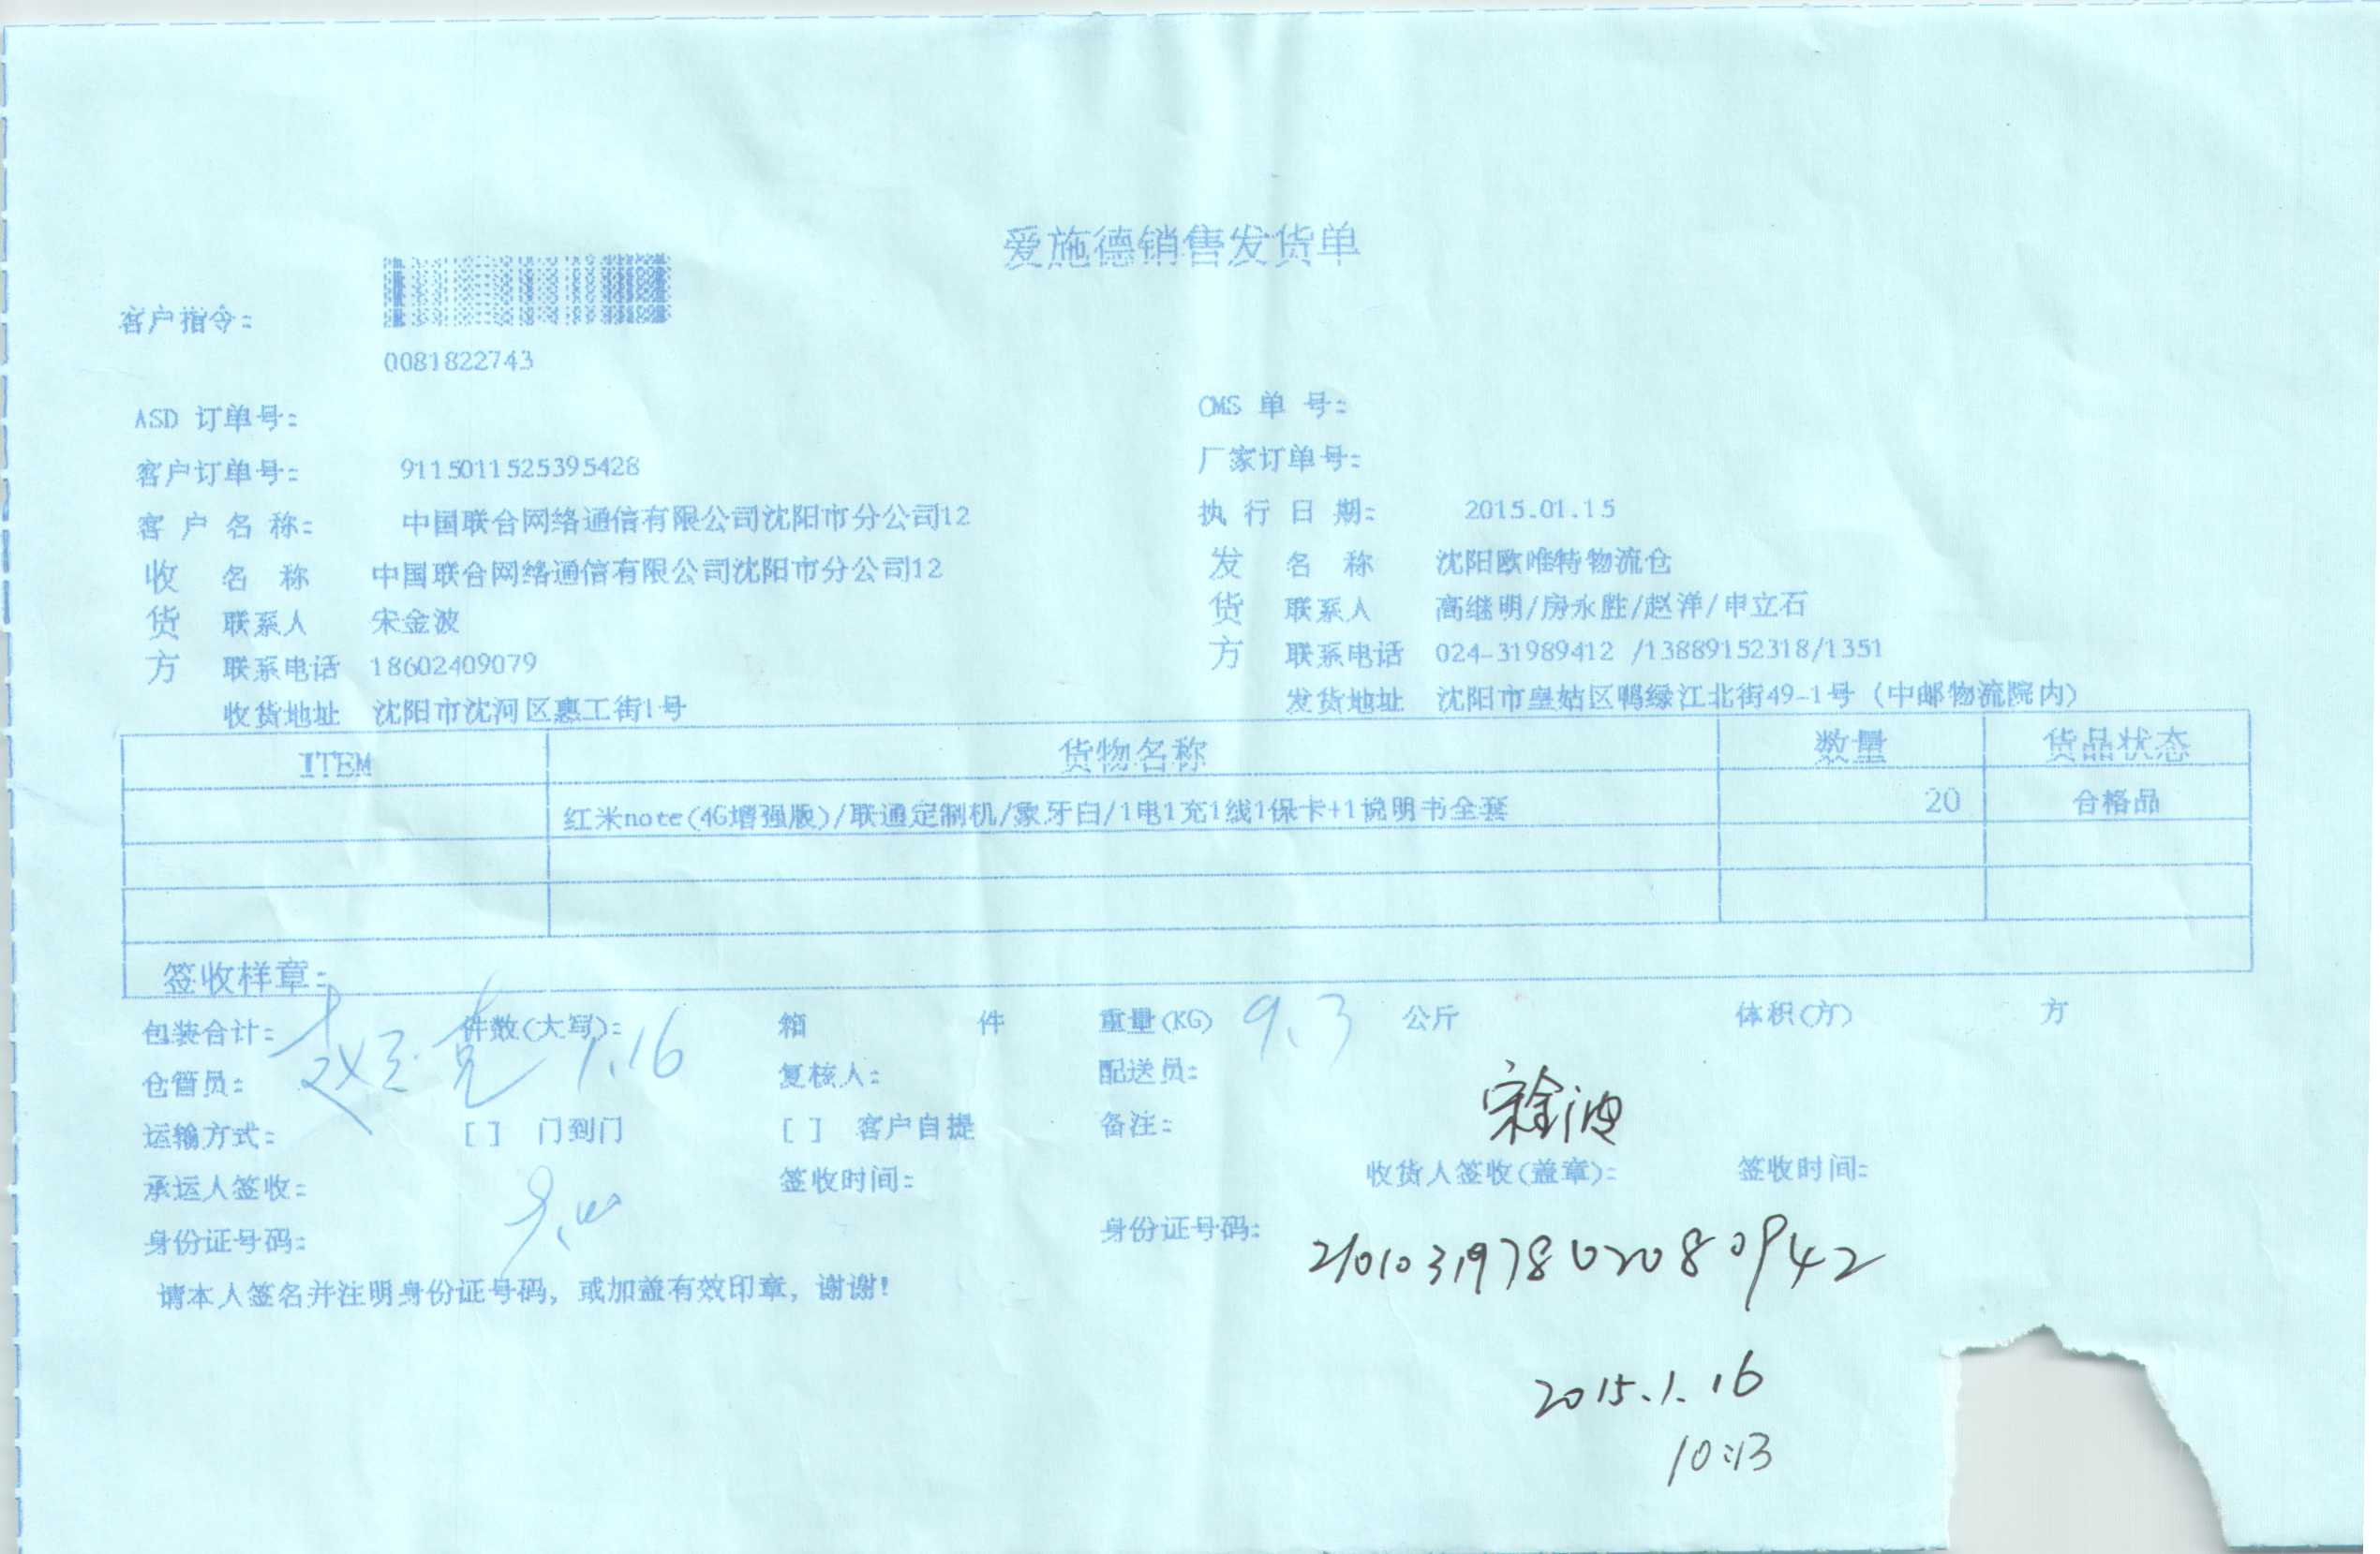 爱施德销售发货单
客户指令:
0081822743
ASD 订单号: CMS 单 号:
客户订单号: 9115011525395428 厂家订单号:
客 户 名 称: 中国联合网络通信有限公司沈阳市分公司12 执 行 日 期: 2015.01.15
收 名 称 中国联合网络通信有限公司沈阳市分公司12 发 名 称 沈阳欧唯特物流仓
货 联系人 宋金波 货 联系人 高继明/房永胜/赵洋/申立石
方 联系电话 18602409079 方 联系电话 024-31989412 /13889152318/1351
收货地址 沈阳市沈河区惠工街1号 发货地址 沈阳市皇姑区鸭绿江北街49-1号 (中邮物流院内)
ITEM 货物名称 数量 货品状态
红米note(4G增强版)/联通定制机/象牙白/1电1充1线1保卡+1说明书全套 20 合格品
签收样章:
包装合计: 件数(大写): 箱 件 重量(KG) 9.3 公斤 体积(方) 方
仓管员: 1.16 复核人: 配送员:
宋金波
运输方式: [ ] 门到门 [ ] 客户自提 备注:
承运人签收: 签收时间: 收货人签收(盖章): 签收时间:
身份证号码: 身份证号码: 210103197802080942
请本人签名并注明身份证号码, 或加盖有效印章, 谢谢!
2015.1.16
10:13